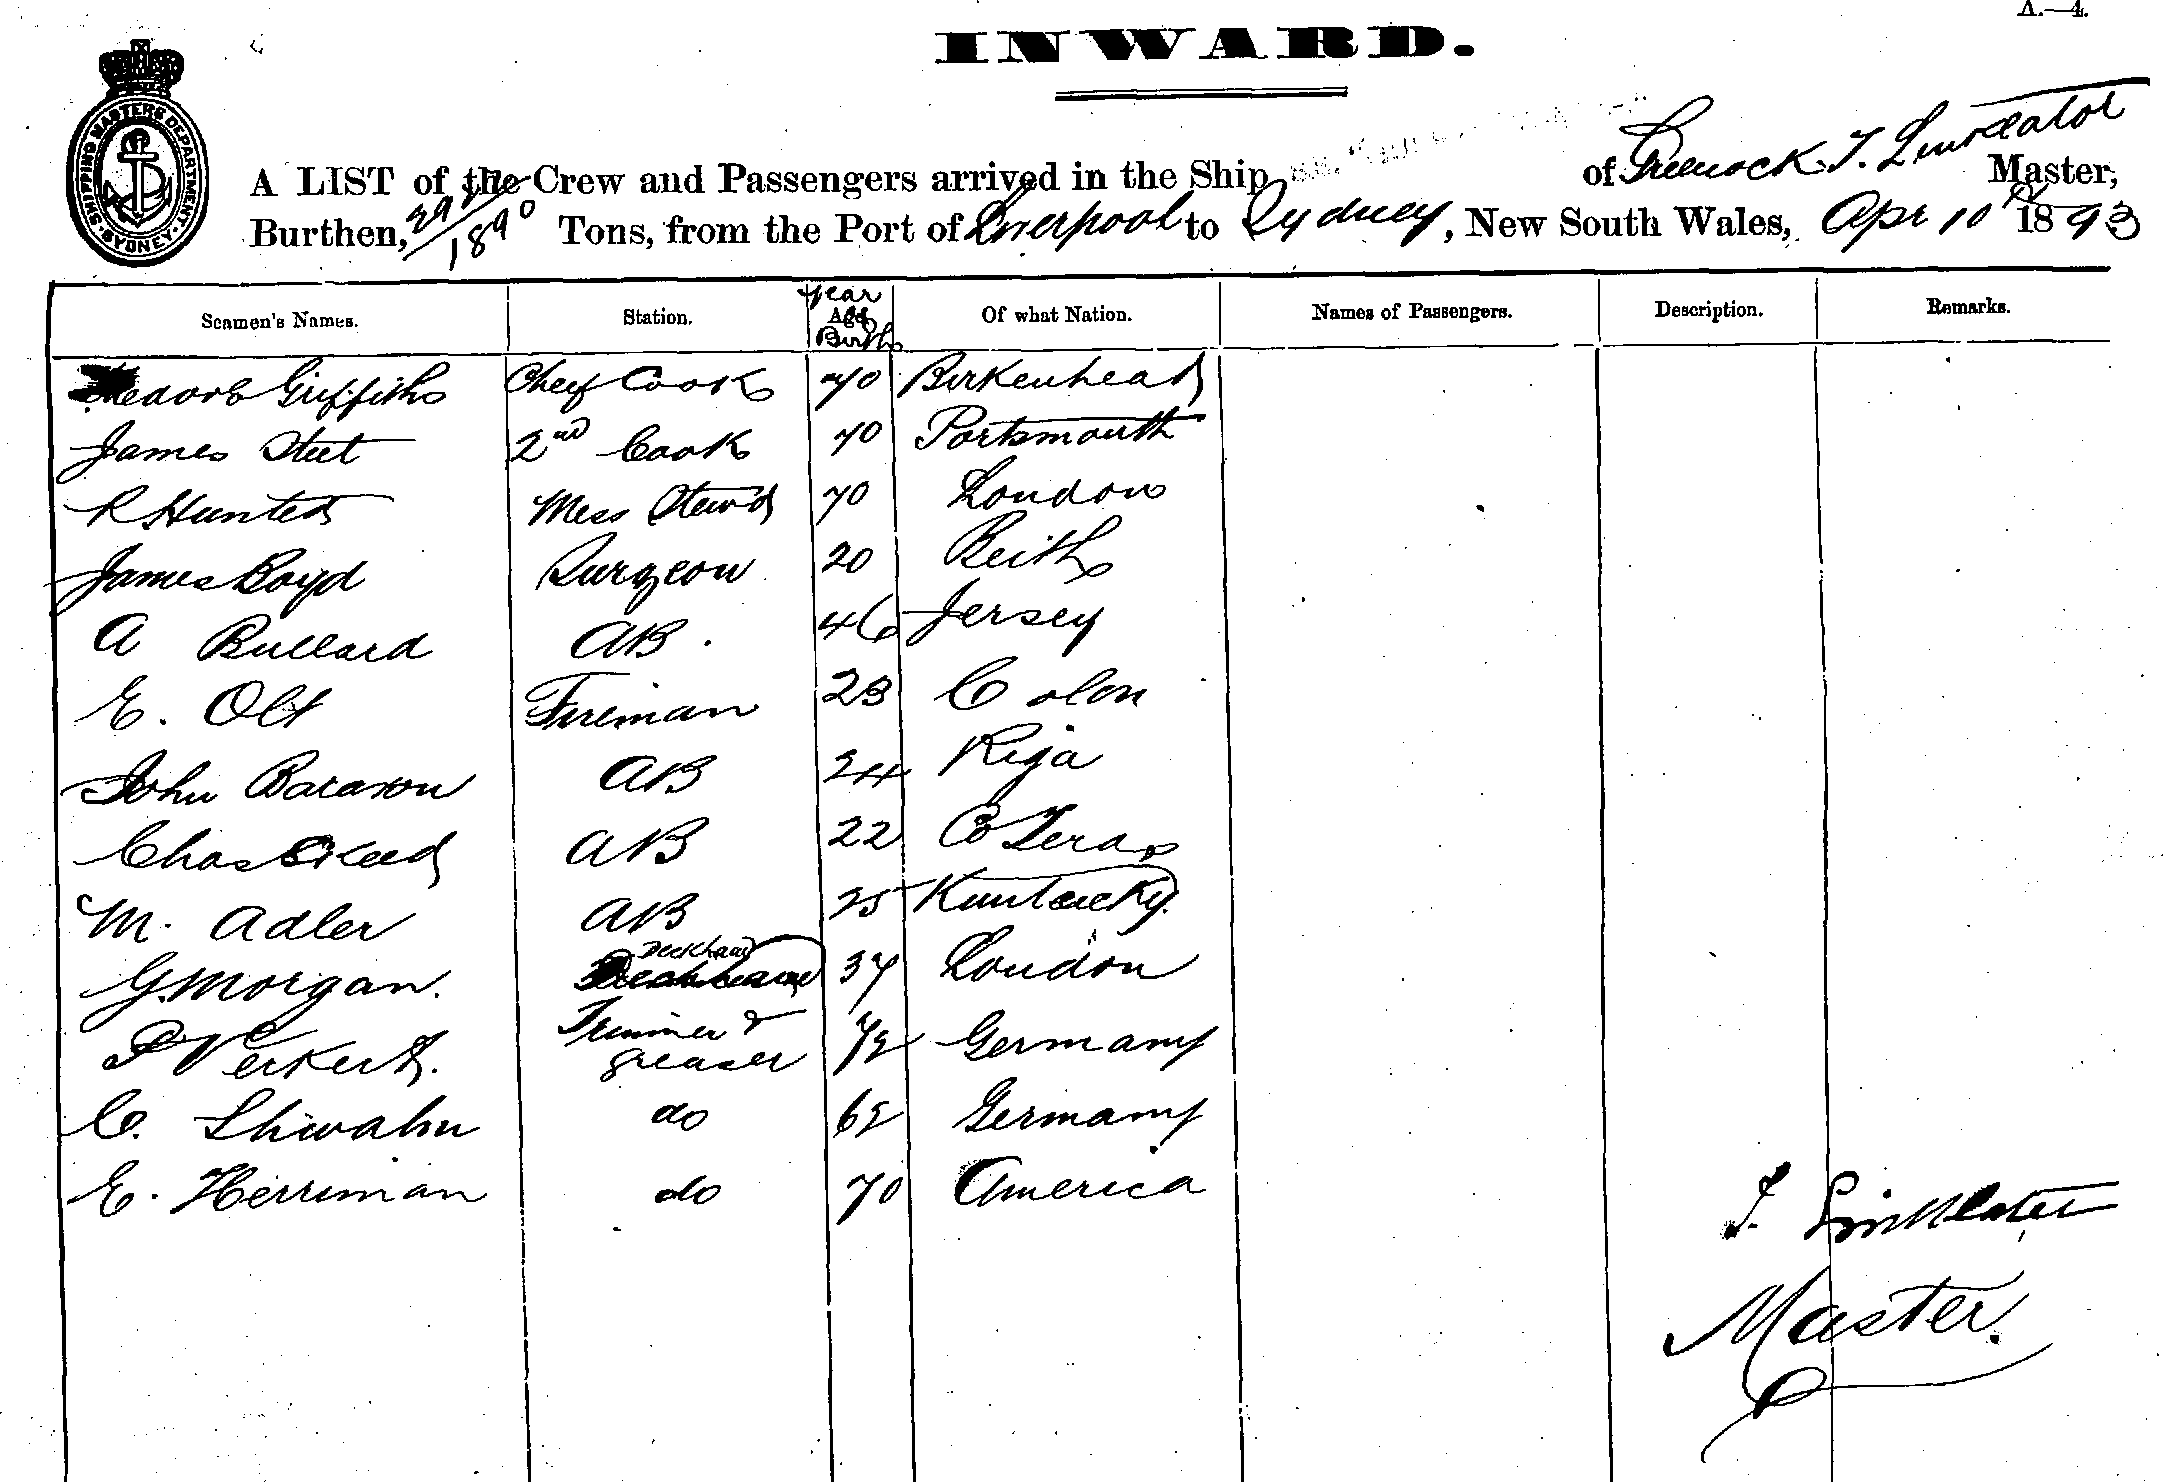 A.—4.
INWARD.
SHIPPING MASTERS DEPARTMENT SYDNEY
A LIST of the Crew and Passengers arrived in the Ship of Greenock. T. Linklator Master,
Burthen, 1890 Tons, from the Port of Liverpool to Sydney, New South Wales, Apr 10th 1893
Seamen's Names. Station. Year Age Birth Of what Nation. Names of Passengers. Description. Remarks.
Griffiths Cheef Cook 70 Birkenhead
James Steet 2nd Cook 70 Portsmouth
R Hunted Mess Stewd 70 London
James Boyd Surgeon 20 Beith
A Bullard AB. 46 Jersey
E. Olt Fireman 23 Colon
John AB 24 Riga
Chas AB 22
M. Adler AB 25 Kuntucky.
G. Morgan. Deckhand 37 London
P Verkert. Trimmer & greaser Germany
C. Shwahn do Germany
E. Herriman do 70 America
T. Linklater
Master.